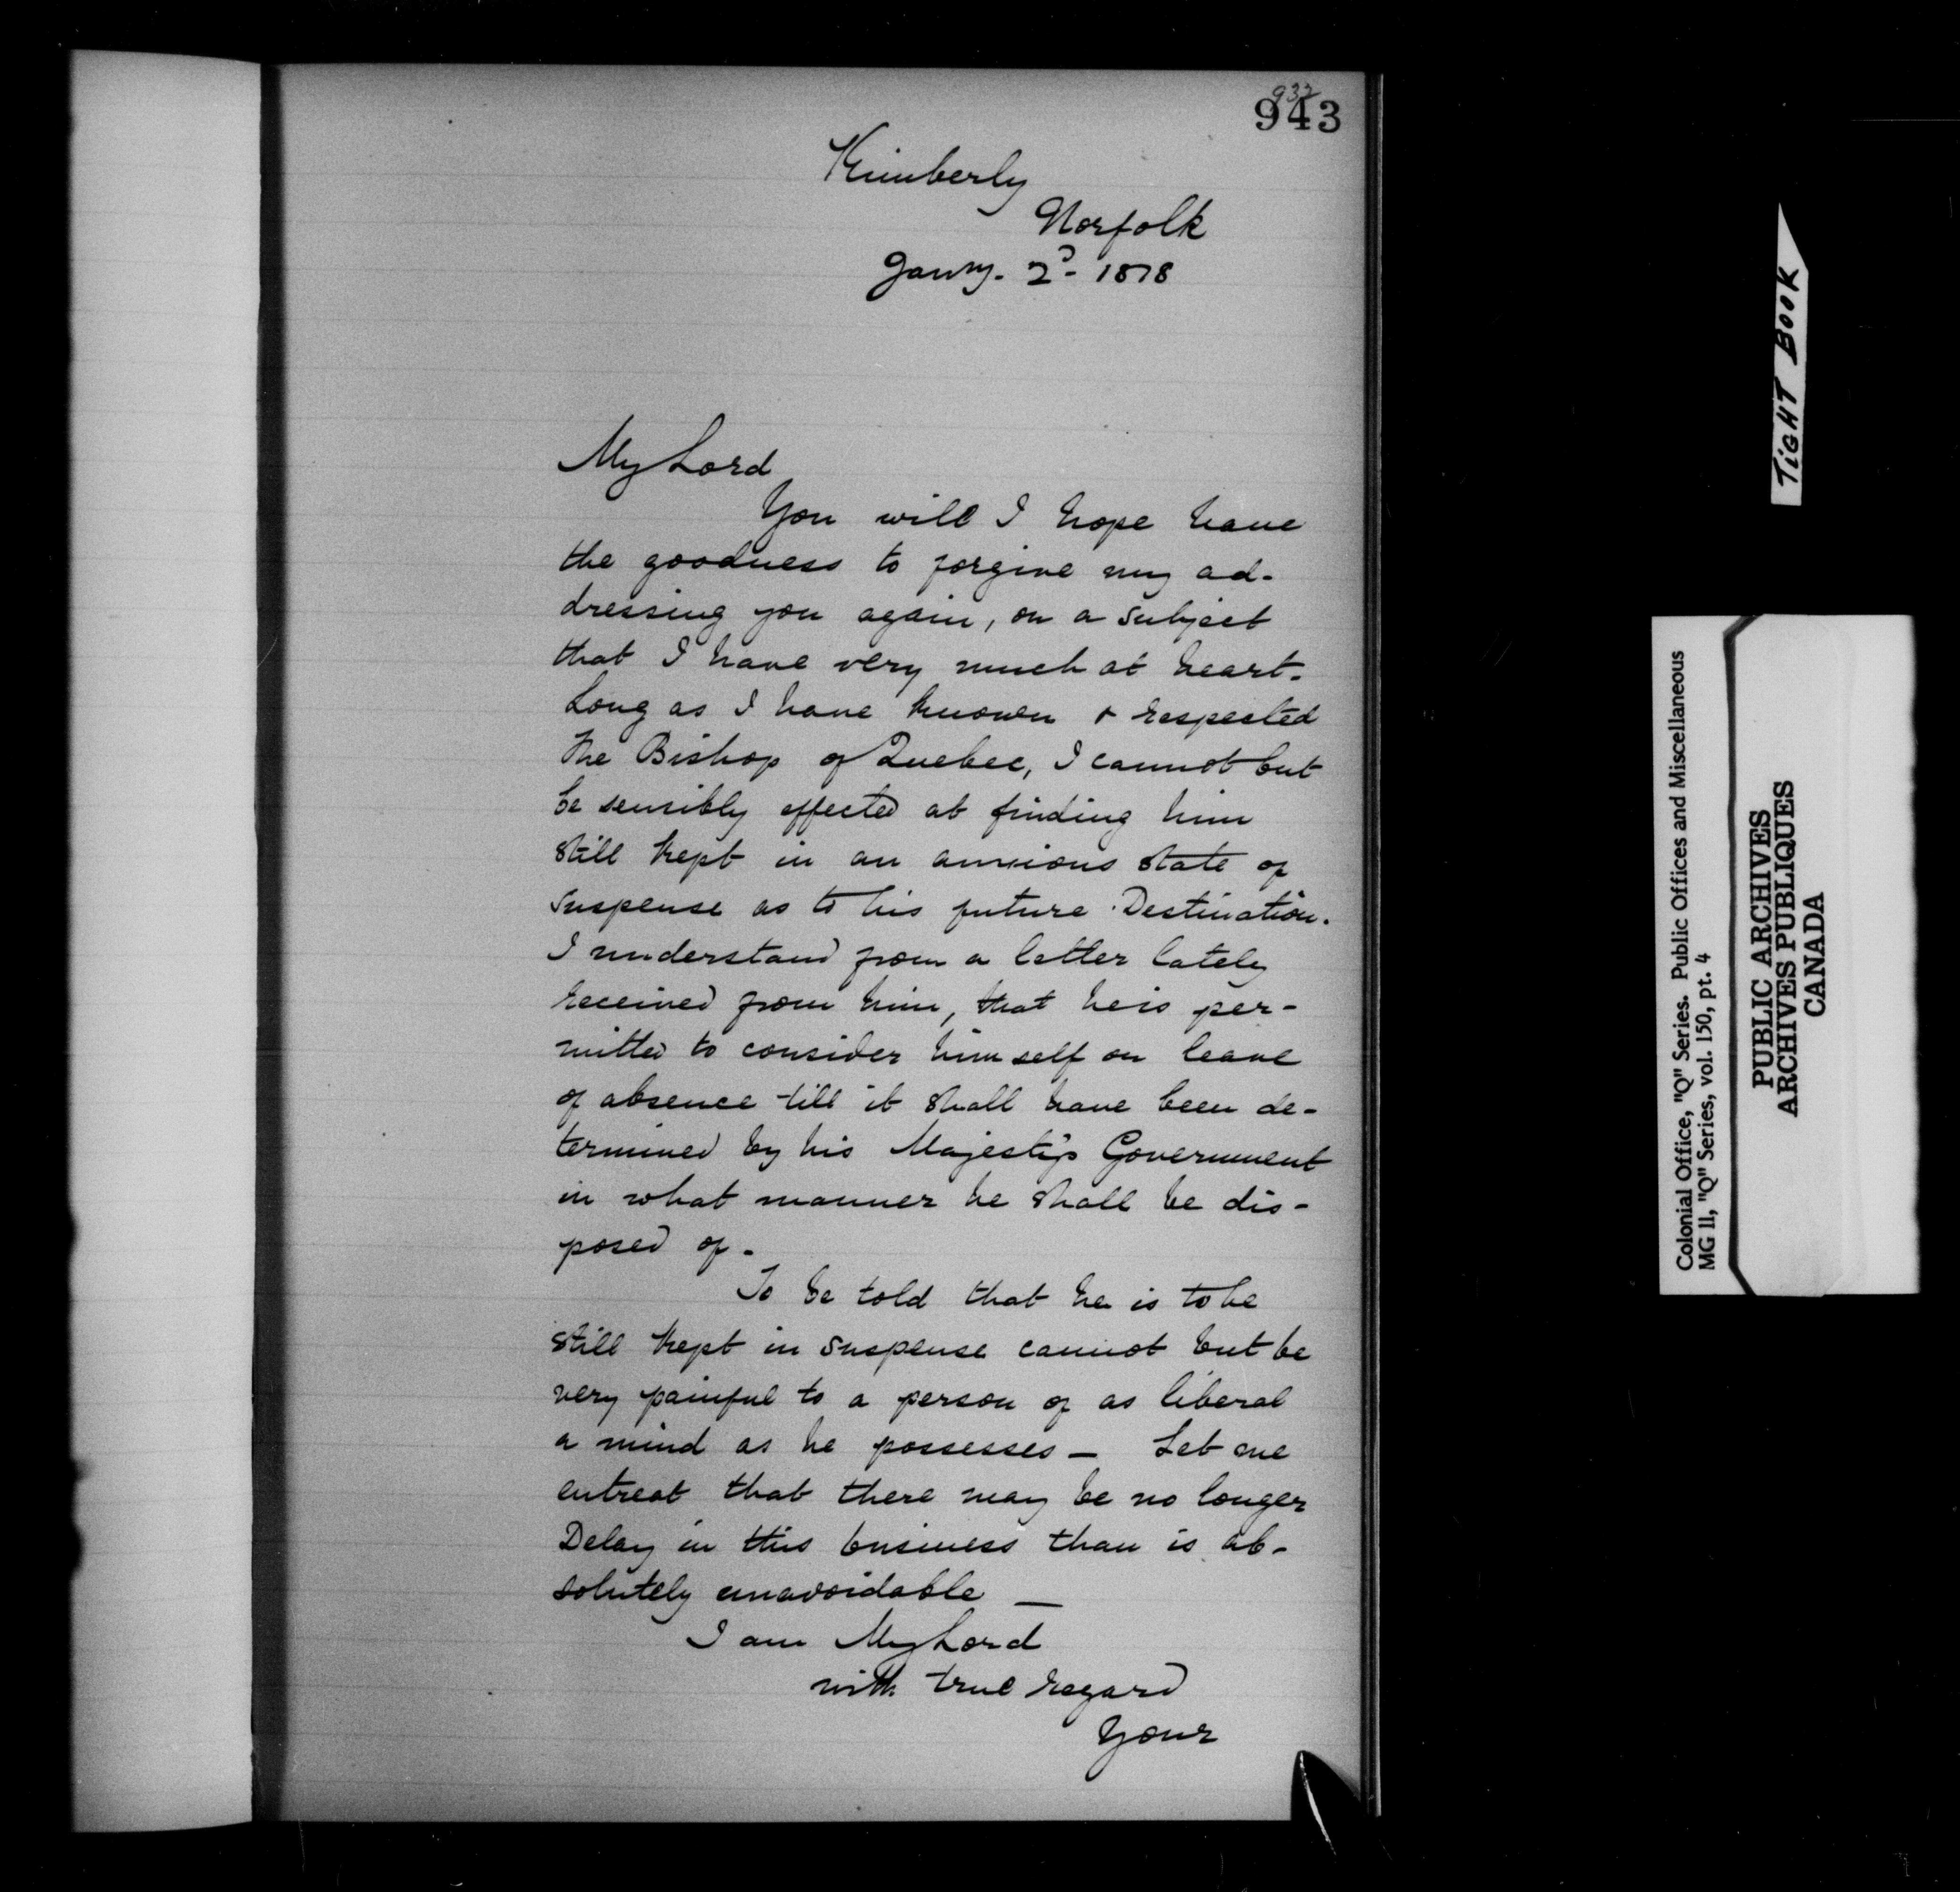 932
943
Kimberly
Norfolk
Jany. 2d - 1818
My Lord
You will I hope have
the goodness to forgive my ad-
dressing you again, on a subject
that I have very much at heart.
Long as I have known & respected
the Bishop of Quebec, I cannot but
be sensibly effected at finding him
still kept in an anxious state of
suspense as to his future Destination.
I understand from a letter lately
received from him, that he is per-
mitted to consider himself on leave
of absence till it shall have been de-
termined by his Majesty's Government
in what manner he shall be dis-
posed of.
To be told that he is to be
still kept in suspense cannot but be
very painful to a person of as liberal
a mind as he possesses — Let me
entreat that there may be no longer
Delay in this business than is ab-
solutely unavoidable —
I am My Lord
with true regard
Your
TIGHT BOOK
Colonial Office, "Q" Series. Public Offices and Miscellaneous
MG 11, "Q" Series, vol. 150, pt. 4
PUBLIC ARCHIVES
ARCHIVES PUBLIQUES
CANADA